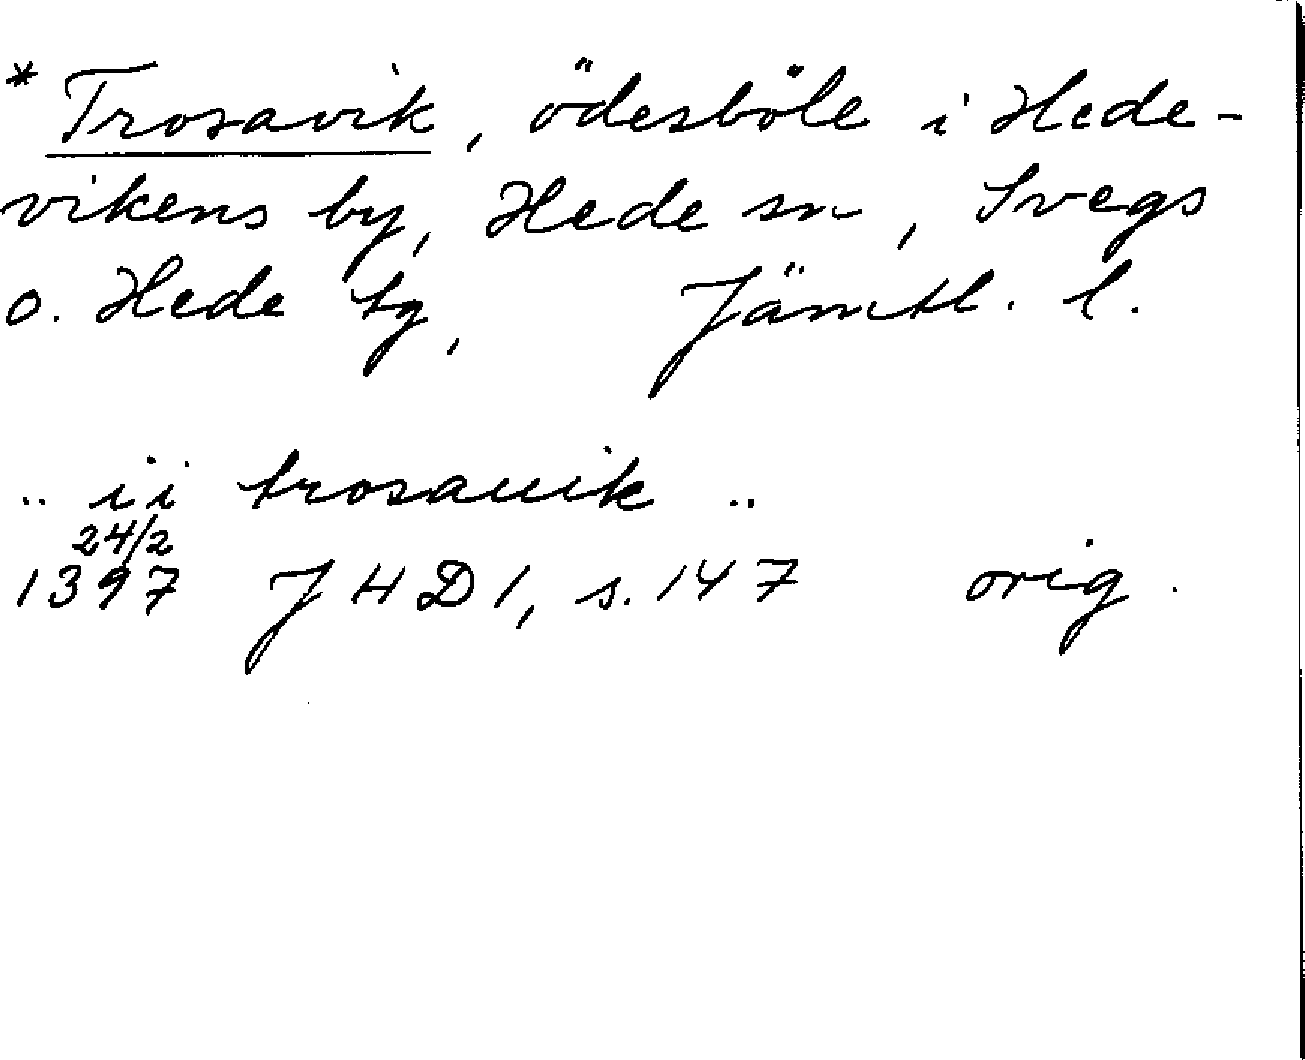 * Trosavik, ödesböle i Hede-
vikens by, Hede sn, Svegs
o. Hede tg, Jämtl. l.
.. i i trosauik ..
24/2
1397 JHD 1, s. 147 orig.